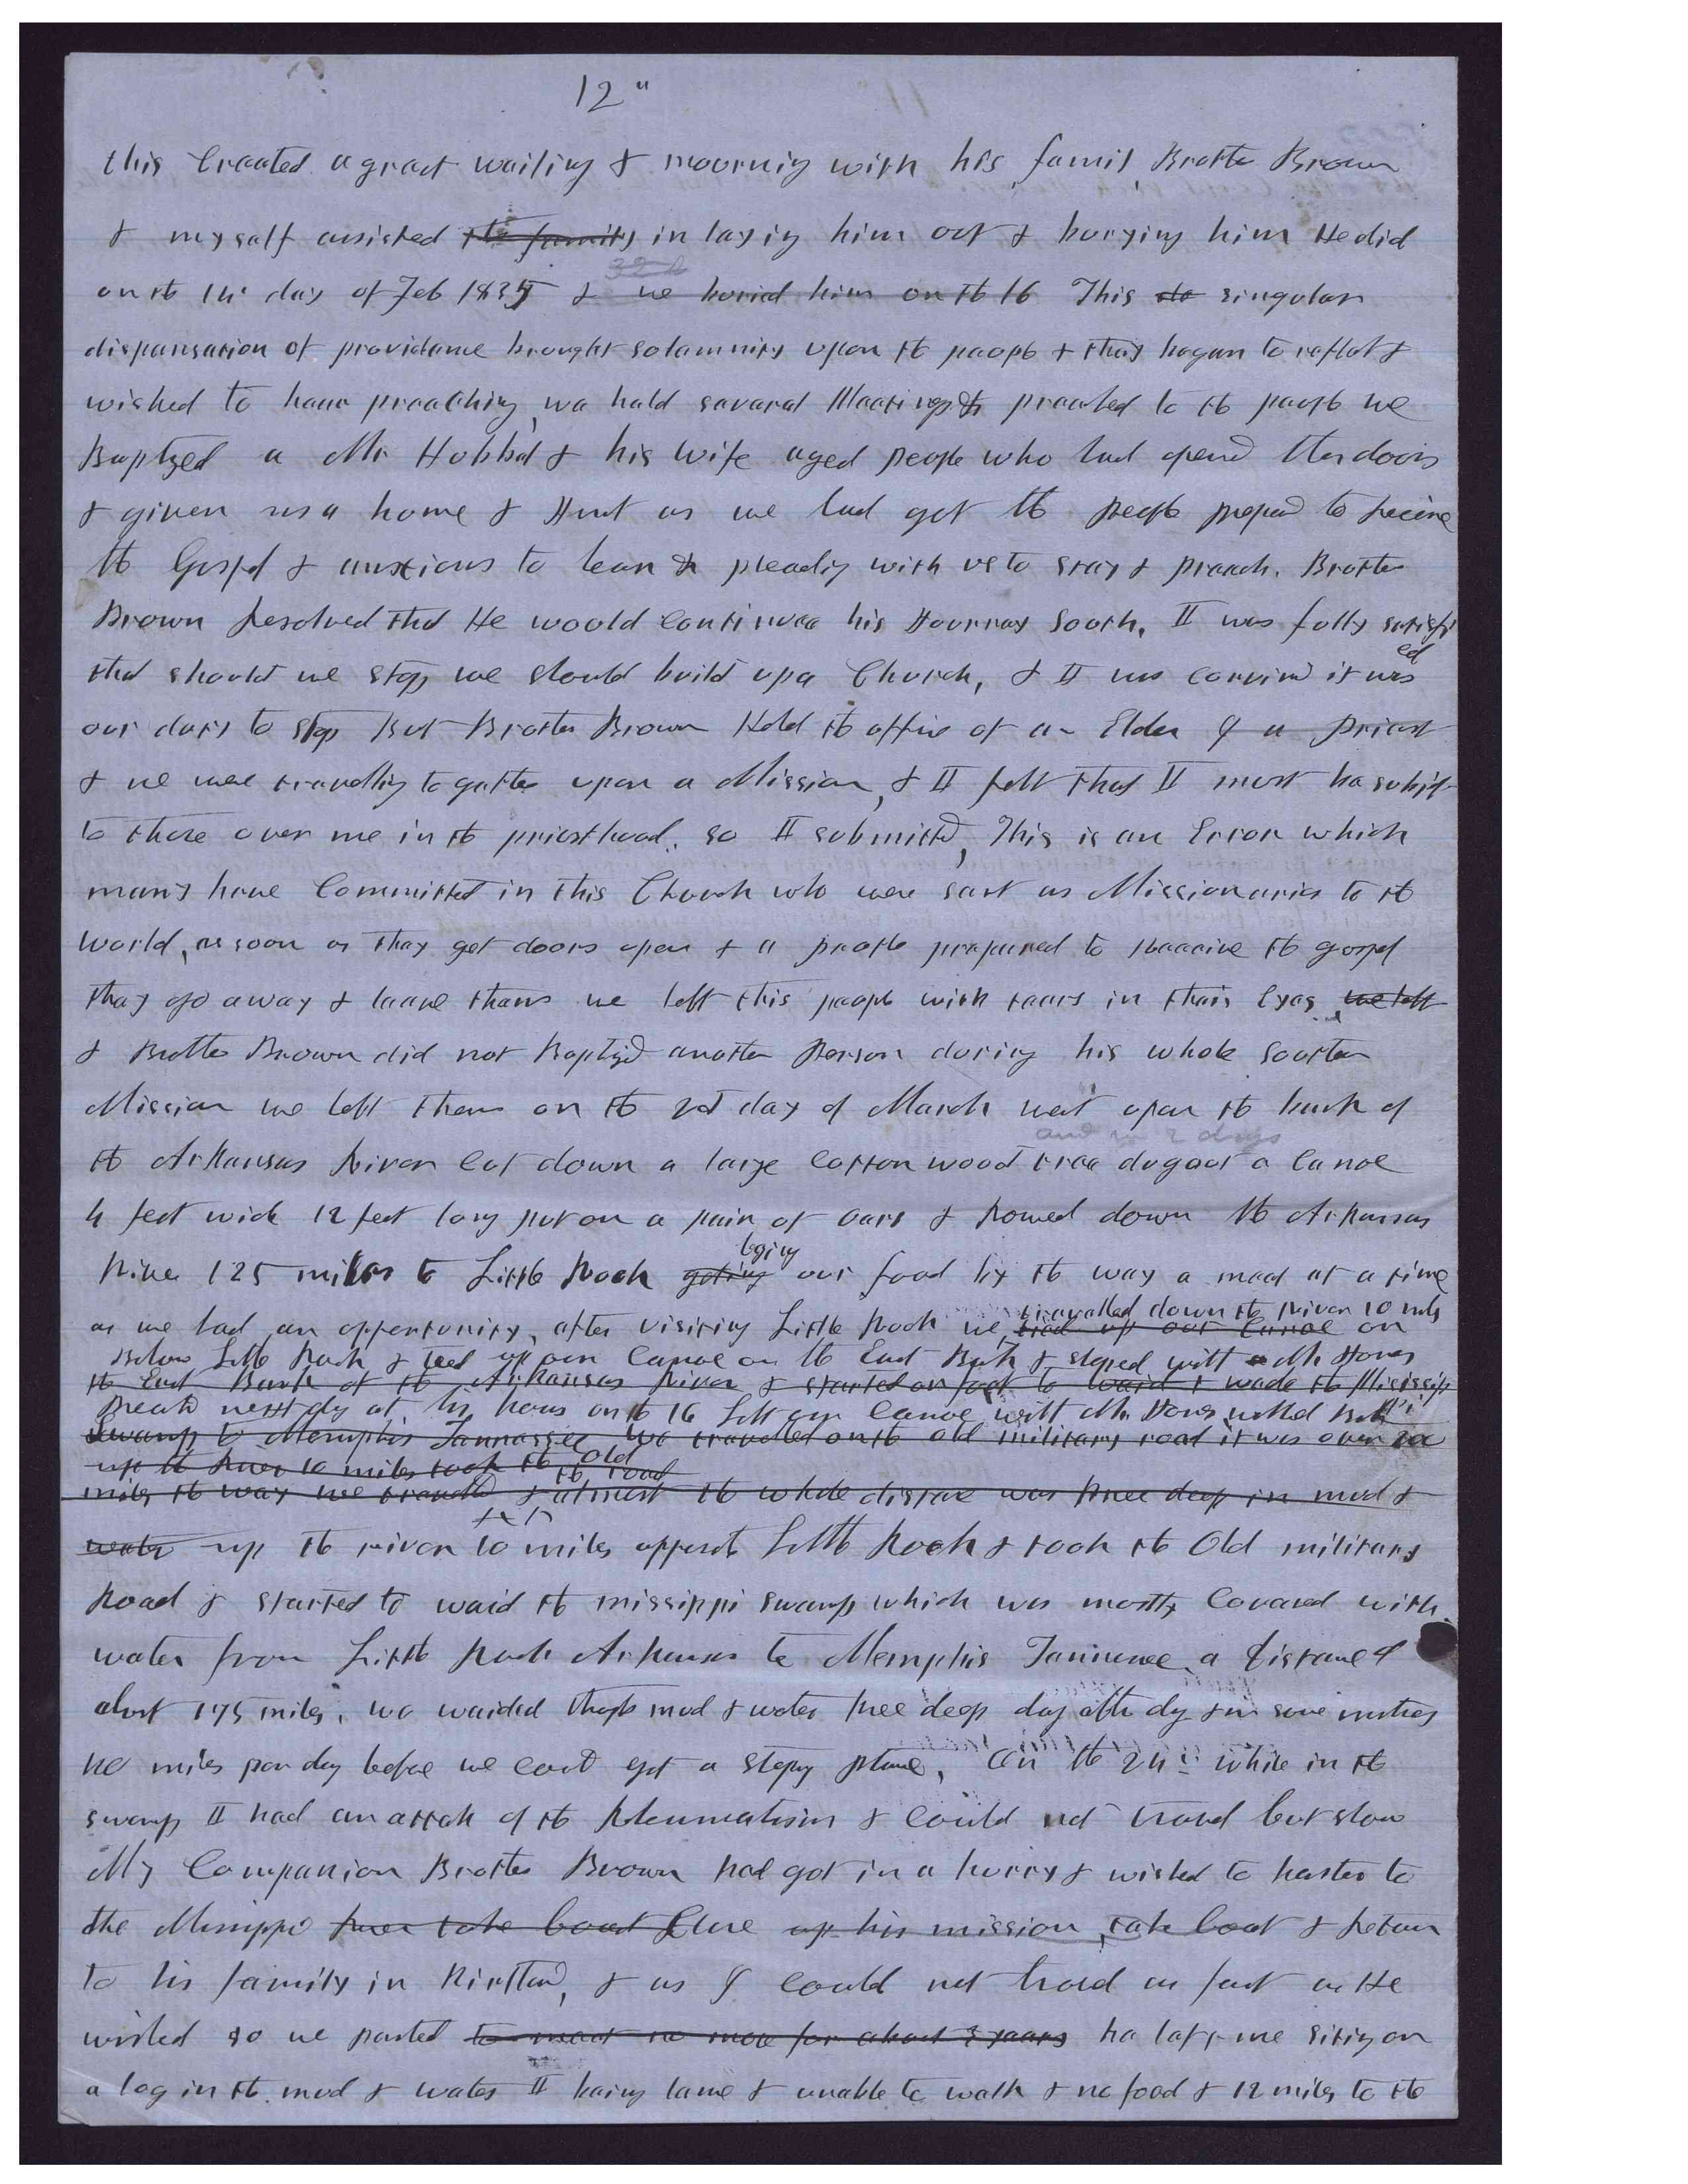 12"
this Created a great wailing & mourning with his famil Brother Brown
& myself assisted the family in laying him out & burying him He did
on the 14th day of Feb 1835 & we buried him on the 16 This singular
dispensation of providance brought solemnity upon the people & they began to reflect &
wished to have preaching, we held several Meetings & preached to the people we
Baptized a Mr Hubbel & his wife aged people who had opend their doors
& given us a home & Just as we had got the people prepard to Receive
the Gospel & anxious to lean & pleading with us to stay & preach. Brother
Brown Resolved that He would continuee his Journey South. I was fully satisfi
ed
that should we stop we should build up a Church, & I was convind it was
our duty to stop But Brother Brown Held the office of an Elder I a Priest
& we were travelling together upon a Mission, & I felt that I must be subjet
to those over me in the priesthood. so I submitted, This is an Error which
many have Committed in this Church who were sent as Missionaries to the
world, as soon as they get doors open & a people prepared to Receeive the gospel
they go away & leave them we left this people with tears in their Eyes, we left
& Brother Brown did not Baptized another Person during his whole southern
Mission we left them on the 2nd day of March went upon the bank of
and in 2 days
the Arkansas River Cut down a large cotton wood tree dugout a Canoe
4 feet wide 12 feet long put on a pair of Oars & Rowed down the Arkansas
beging
River 125 miles to Little Rock geting our food by the way a meal at a time
travelled down the River 10 mils
as we had an opportunity, after visiting Little Rock we tied up our Canoe on
Below Little Rock & tied up our Canoe on the East Bank & stoped with Mr Jones
the East Bank of the Arkansas River & started on foot to waid & wade the Mississip
Preachd next day at his hous on the 16 left our Canoe with Mr Jones walked Back
Swamp to Memphis Tannassee We travelled on the old military road it was over
up the River 10 miles took the Old
the road
miles the way we travelled & almost the whole distance was knee deep in mud &
water up the river 10 miles opposite Little Rock & took the Old military
Road & started to waid the missippi swamp which was mostly Covered with
water from Little Rock Arkansas to Memphis Tannessee, a distance of
about 175 miles, we waided through mud & water knee deep day after day & in some instances
40 miles per day before we could get a stoping place, On the 24th while in the
swamp I had an attack of the Rheumatism & could not travel but slow
My Companion Brother Brown had got in a hurry & wished to hasten to
the Missippi River take boat Give up his mission, take boat & Return
to his family in Kirtland, & as I could not travel as fast as He
wished so we parted to meet no more for about 3 years he left me siting on
a log in the mud & water I being lame & unable to walk & no food & 12 miles to the